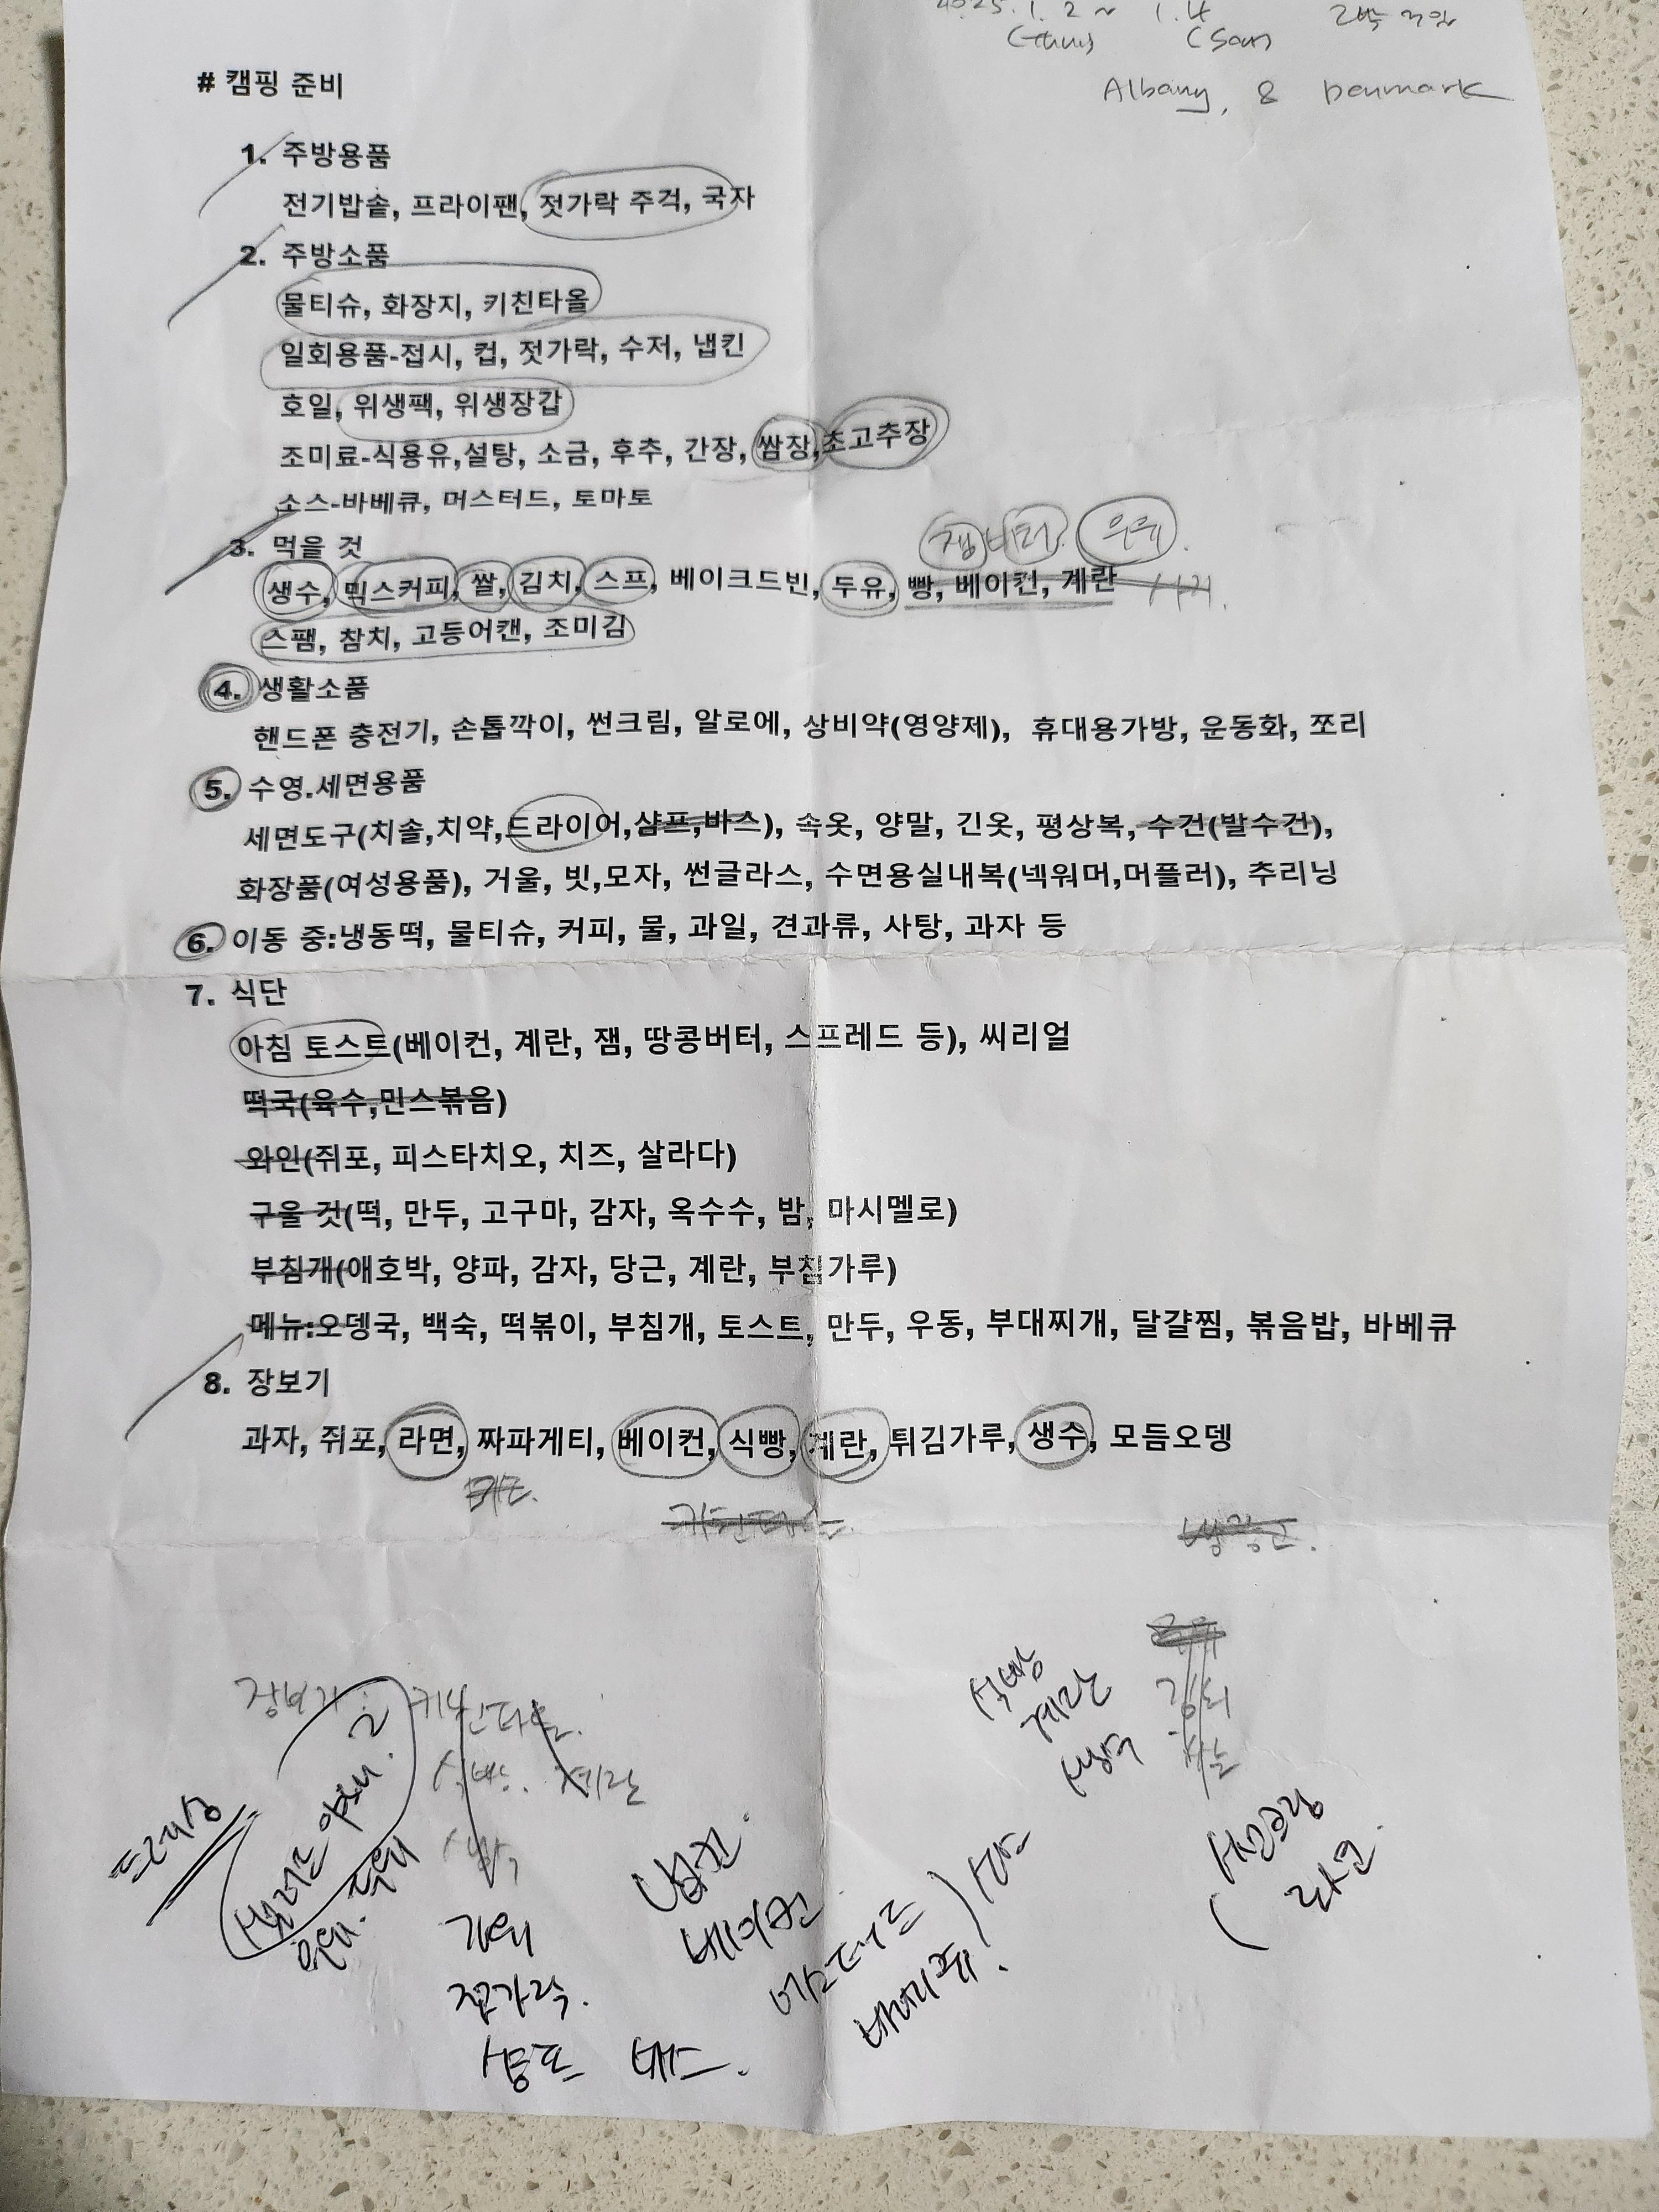 2025. 1. 2 ~ 1. 4 2박 3일
(Thur) (Sat)
Albany, & Denmark
# 캠핑 준비
1. 주방용품
전기밥솥, 프라이팬, 젓가락 주걱, 국자
2. 주방소품
물티슈, 화장지, 키친타올
일회용품-접시, 컵, 젓가락, 수저, 냅킨
호일, 위생팩, 위생장갑
조미료-식용유,설탕, 소금, 후추, 간장, 쌈장,초고추장
소스-바베큐, 머스터드, 토마토
잼 버터. 우유.
3. 먹을 것
생수, 믹스커피, 쌀, 김치, 스프, 베이크드빈, 두유, 빵, 베이컨, 계란
스팸, 참치, 고등어캔, 조미김
4. 생활소품
핸드폰 충전기, 손톱깍이, 썬크림, 알로에, 상비약(영양제), 휴대용가방, 운동화, 쪼리
5. 수영.세면용품
세면도구(치솔,치약,드라이어,샴프,바스), 속옷, 양말, 긴옷, 평상복, 수건(발수건),
화장품(여성용품), 거울, 빗,모자, 썬글라스, 수면용실내복(넥워머,머플러), 추리닝
6. 이동 중:냉동떡, 물티슈, 커피, 물, 과일, 견과류, 사탕, 과자 등
7. 식단
아침 토스트(베이컨, 계란, 잼, 땅콩버터, 스프레드 등), 씨리얼
떡국(육수,민스볶음)
와인(쥐포, 피스타치오, 치즈, 살라다)
구울 것(떡, 만두, 고구마, 감자, 옥수수, 밤, 마시멜로)
부침개(애호박, 양파, 감자, 당근, 계란, 부침가루)
메뉴:오뎅국, 백숙, 떡볶이, 부침개, 토스트, 만두, 우동, 부대찌개, 달걀찜, 볶음밥, 바베큐
8. 장보기
과자, 쥐포, 라면, 짜파게티, 베이컨, 식빵, 계란, 튀김가루, 생수, 모듬오뎅
식빵
계란
생수
장보기 : 키친타올.
식빵. 계란
드레싱
가위
젓가락.
샴푸 바스.
냅킨.
베이컨
머스터드
바베큐.
선크림
라면.